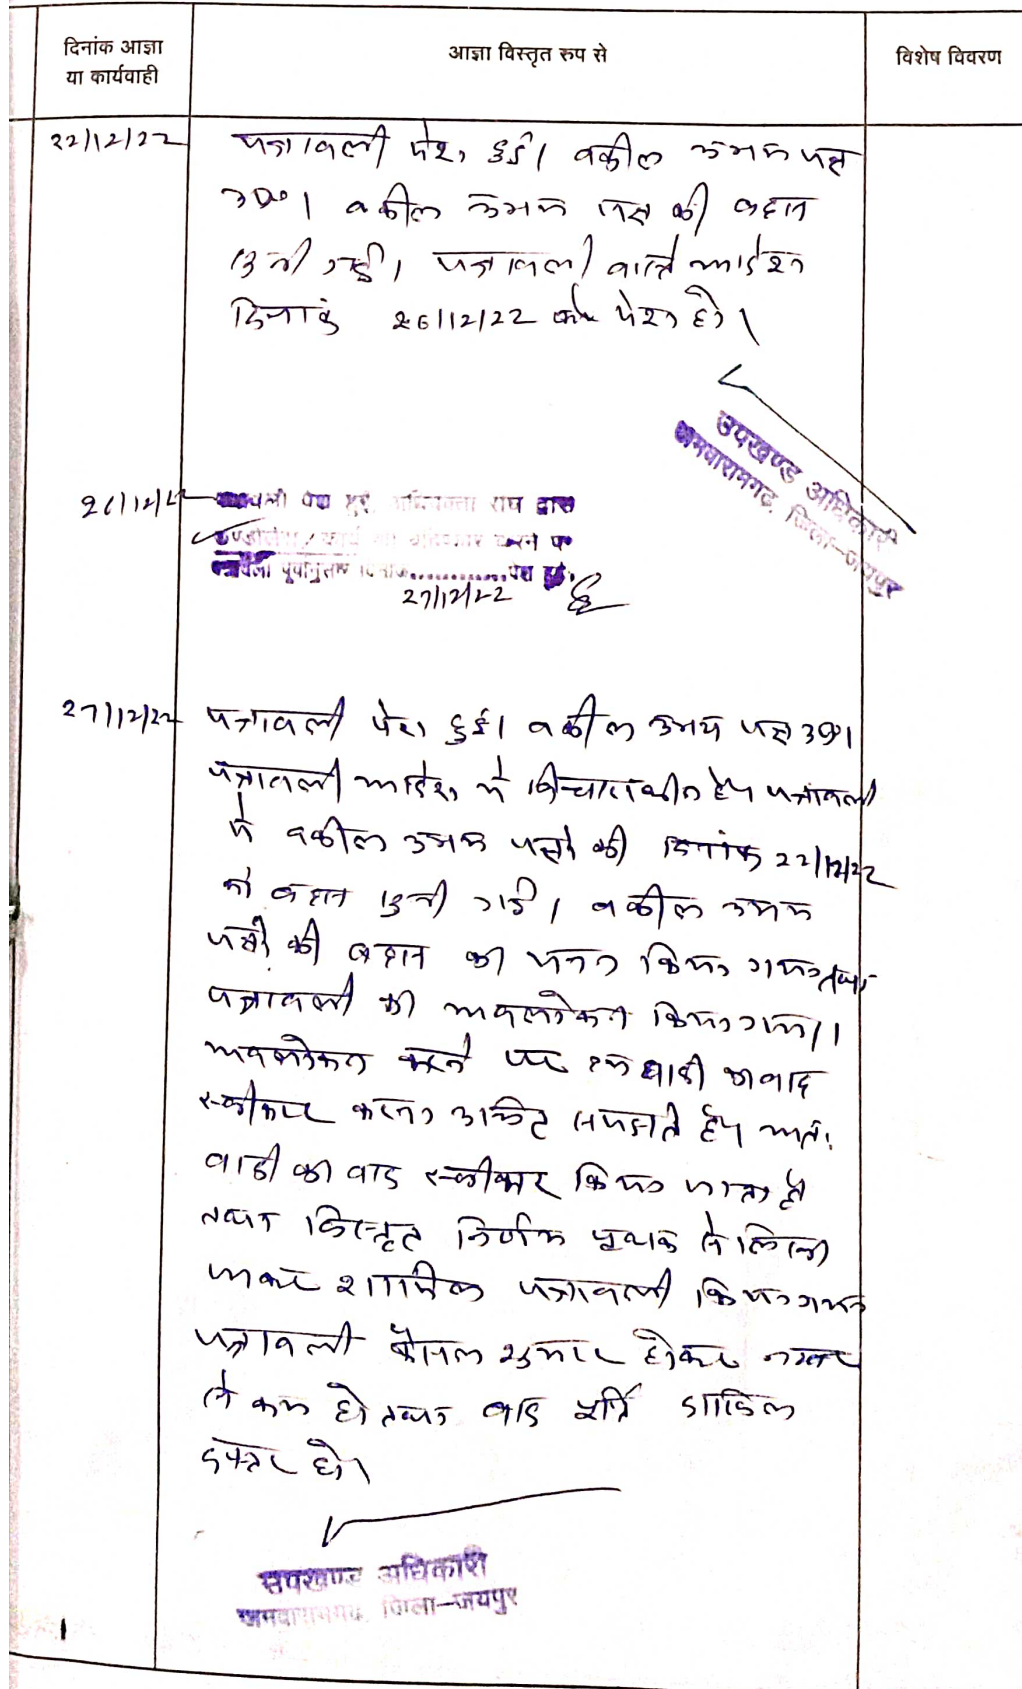 दिनांक आज्ञा
या कार्यवाही
आज्ञा विस्तृत रुप से
विशेष विवरण
22/12/22
पत्रावली पेश हुई। वकील उभय पक्ष
उप०। वकील उभय पक्ष की बहस
सुनी गई। पत्रावली वास्ते आदेश
दिनांक 26/12/22 को पेश हो।
उपखण्ड अधिकारी
जमवारामगढ, जिला-जयपुर
26/12/22
पेश हुई, अधिवक्ता संघ द्वारा
कार्य का बहिष्कार करने पर
पूर्वानुसार दिनांक............पेश हुई।
27/12/22
27/12/22
पत्रावली पेश हुई। वकील उभय पक्ष उप०।
पत्रावली आदेश में विचाराधीन है। पत्रावली
में वकील उभय पक्षों की दिनांक 22/12/22
को बहस सुनी गई। वकील उभय
पक्षों की बहस का मनन किया गया तथा
पत्रावली का अवलोकन किया गया।
अवलोकन करने पर हम वादी का वाद
स्वीकार करना उचित समझते है। अतः
वादी का वाद स्वीकार किया जाता है
तथा विस्तृत निर्णय पृथक से लिखा
जाकर शामिल पत्रावली किया गया
पत्रावली फैसल शुमार होकर नम्बर
से कम हो तथा बाद पूर्ति दाखिल
दफ्तर हो।
उपखण्ड अधिकारी
जमवारामगढ, जिला-जयपुर